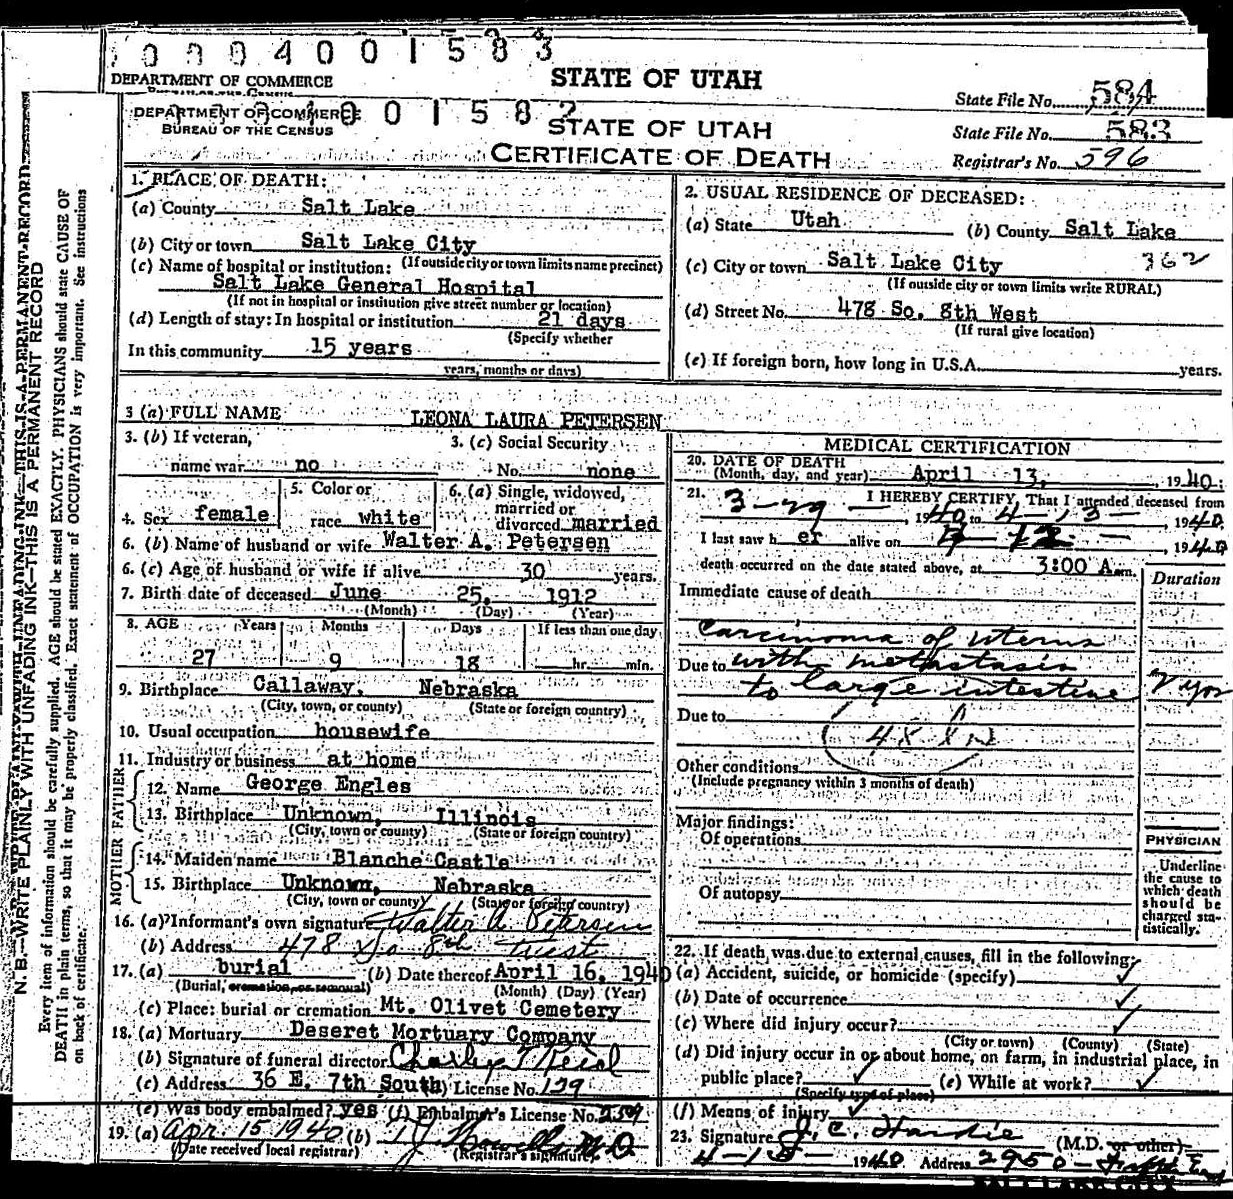 0004001583
DEPARTMENT OF COMMERCE
STATE OF UTAH
State File No. 584
DEPARTMENT OF COMMERCE
BUREAU OF THE CENSUS
STATE OF UTAH
State File No. 583
CERTIFICATE OF DEATH
Registrar's No. 596
1. PLACE OF DEATH:
(a) County Salt Lake
(b) City or town Salt Lake City
(If outside city or town limits name precinct)
(c) Name of hospital or institution:
Salt Lake General Hospital
(If not in hospital or institution give street number or location)
(d) Length of stay: In hospital or institution 21 days
(Specify whether
In this community 15 years
years, months or days)
2. USUAL RESIDENCE OF DECEASED:
(a) State Utah (b) County Salt Lake
(c) City or town Salt Lake City 362
(If outside city or town limits write RURAL)
(d) Street No. 478 So. 8th West
(If rural give location)
(e) If foreign born, how long in U.S.A. years.
3 (a) FULL NAME LEONA LAURA PETERSEN
3. (b) If veteran,
name war no
3. (c) Social Security
No. none
4. Sex female
5. Color or
race white
6. (a) Single, widowed,
married or
divorced married
6. (b) Name of husband or wife Walter A. Petersen
6. (c) Age of husband or wife if alive 30 years.
7. Birth date of deceased June 25, 1912
(Month) (Day) (Year)
8. AGE Years Months Days If less than one day
27 9 18 hr. min.
9. Birthplace Callaway, Nebraska
(City, town, or county) (State or foreign country)
10. Usual occupation housewife
11. Industry or business at home
FATHER
12. Name George Engles
13. Birthplace Unknown, Illinois
(City, town or county) (State or foreign country)
MOTHER
14. Maiden name Blanche Castle
15. Birthplace Unknown, Nebraska
(City, town or county) (State or foreign country)
16. (a) Informant's own signature Walter A. Petersen
(b) Address 478 So 8th West
17. (a) burial (b) Date thereof April 16, 1940
(Burial, cremation, or removal) (Month) (Day) (Year)
(c) Place: burial or cremation Mt. Olivet Cemetery
18. (a) Mortuary Deseret Mortuary Company
(b) Signature of funeral director
(c) Address 36 E. 7th South (d) License No. 129
(e) Was body embalmed? yes (f) Embalmer's License No.
19. (a) Apr. 15 1940 (b) M.D.
(Date received local registrar) (Registrar's signature)
MEDICAL CERTIFICATION
20. DATE OF DEATH
(Month, day, and year) April 13, 1940.
21. I HEREBY CERTIFY, That I attended deceased from
3-29- 1940 to 4-13- 1940.
I last saw her alive on 1940
death occurred on the date stated above, at 3:00 A.m.
Duration
Immediate cause of death
Carcinoma of uterus
Due to with metastasis
to large intestine 2 yrs
Due to
Other conditions
(Include pregnancy within 3 months of death)
Major findings:
Of operations
Of autopsy
PHYSICIAN
Underline
the cause to
which death
should be
charged sta-
tistically.
22. If death was due to external causes, fill in the following:
(a) Accident, suicide, or homicide (specify) ✓
(b) Date of occurrence ✓
(c) Where did injury occur? ✓
(City or town) (County) (State)
(d) Did injury occur in or about home, on farm, in industrial place, in
public place? ✓ (e) While at work? ✓
(Specify type of place)
(f) Means of injury ✓
23. Signature J. C. Hardie (M.D. or other)
4-15- 1940 Address 2950
SALT LAKE CITY
N.B.—WRITE PLAINLY WITH UNFADING INK—THIS IS A PERMANENT RECORD
Every item of information should be carefully supplied. AGE should be stated EXACTLY. PHYSICIANS should state CAUSE OF
DEATH in plain terms, so that it may be properly classified. Exact statement of OCCUPATION is very important. See instructions
on back of certificate.